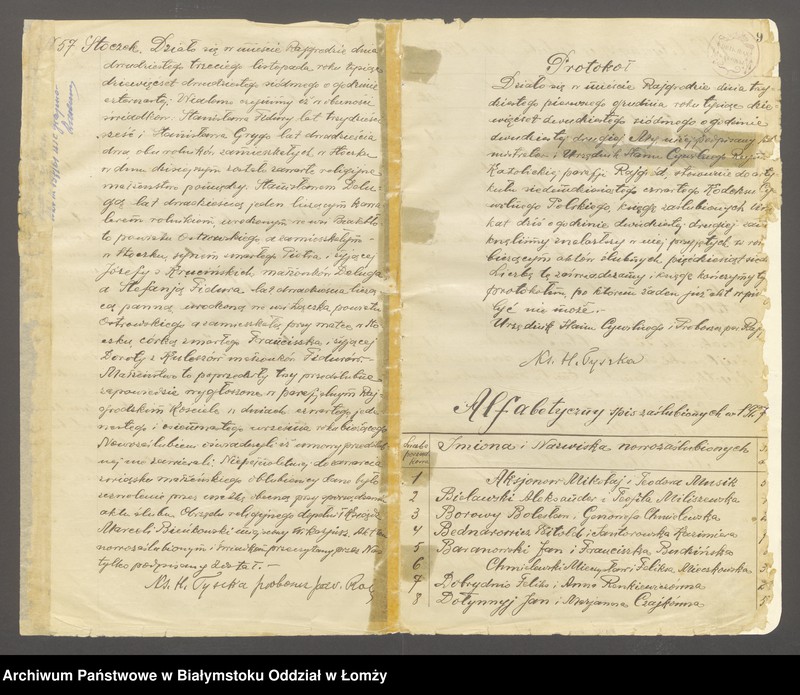 57 Stoczek. Działo się w mieście Rajgrodzie dnia
dwudziestego trzeciego listopada roku tysiąc
dziewięćset dwudziestego siódmego o godzinie
czwartej. Wiadomo czynimy iż w obecności
świadków: Stanisława Fidury lat trzydzieści
sześć i Stanisława Grygo lat dwadzieścia
dwa obu rolników zamieszkałych w Stoczku
w dniu dzisiejszym zostało zawarte religijne
małżeństwo pomiędzy: Stanisławem Dołę-
gą lat dwadzieścia jeden liczącym kawa
lerem rolnikiem, urodzonym we wsi
powiatu Ostrowskiego a zamieszkałym
w Stoczku, synem zmarłego Piotra i żyjącej
Józefy z małżonków Dołęga
a Stefanją Fidura lat dwadzieścia liczą
cą panną urodzoną we wsi powiatu
Ostrowskiego a zamieszkałą przy matce w Sto
czku, córką zmarłego Franciszka i żyjącej
Doroty z małżonków Fidurów.-
Małżeństwo to poprzedziły trzy przedślubne
zapowiedzie wygłoszone w parafjalnym Raj-
grodzkim Kościele w dniach
i września roku bieżącego
Nowozaślubieni oświadczyli iż umowy przedślub
nej nie zawierali. Niepełnoletniej do zawarcia
związku małżeńskiego oblubienicy dane było
zezwolenie przez matkę obecną przy sporządzaniu
aktu ślubu. Obrzędu religijnego dopełnił Ksiądz
Marceli Bieńkowski Akt ten
nowozaślubionym i świadkom przeczytany, przez Nas
tylko podpisany został.-
Ks. H. Tyszka proboszcz par. Rajg
9
Protokoł
Działo się w mieście Rajgrodzie dnia trzy
dziestego pierwszego grudnia roku tysiąc dzie
więćset dwudziestego siódmego o godzinie
dwudziestej drugiej. My niżej podpisany
i Urzędnik Stanu Cywilnego Rzym
Katolickiej parafji Rajgród, stosownie do arty
kułu siedemdziesiątego czwartego Kodeksu Cy
wilnego Polskiego, księgę zaślubionych
dziś o godzinie dwudziestej drugiej
znalazłszy w niej przyjętych w ro
bieżącym aktów ślubnych, pięćdziesiąt siedem
liczbę tę zaświadczamy i księgę kończymy tym
protokołem, po którem żaden już akt w
być nie może.-
Urzędnik Stanu Cywilnego i Proboszcz par. Rajg.
Ks. H. Tyszka
Alfabetyczny spis zaślubionych w 1927
Imiona i Nazwiska nowozaślubionych
1 Aksjonow Mikołaj i Teodora Mursik
2 Bielawski Aleksander i Teofila Miliszewska
3 Borowy Bolesław i Genowefa Chmielewska
4 Bednarowicz Witold i Kazimiera
5 Baranowski Jan i Franciszka Budzińska
6 Chmielewski Mieczysław i Feliksa Mieczkowska
7 Dobrydnio Feliks i Anna
8 Dołynnyj Jan i Marjanna Czajkówna
Archiwum Państwowe w Białymstoku Oddział w Łomży